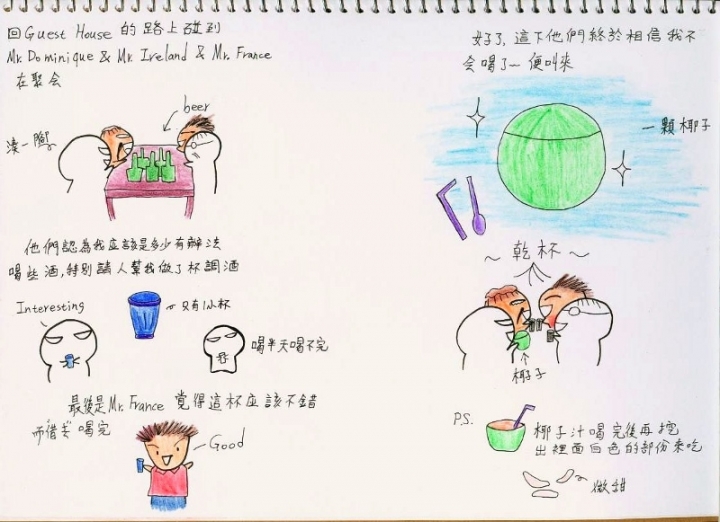 回Guest House 的路上碰到
Mr. Dominique & Mr. Ireland & Mr. France
在聚会
beer
湊一腳
他們認為我应該是多少有辦法
喝些酒,特別請人幫我做了杯調酒
Interesting
只有1小杯
喝半天喝不完
最後是Mr. France 覺得這杯应該不錯
而借去喝完
Good
好了, 這下他們終於相信我不
会喝了~ 便叫來
一顆椰子
~ 乾杯 ~
椰子
P.S.
椰子汁喝完後再挖
出裡面白色的部份來吃
微甜